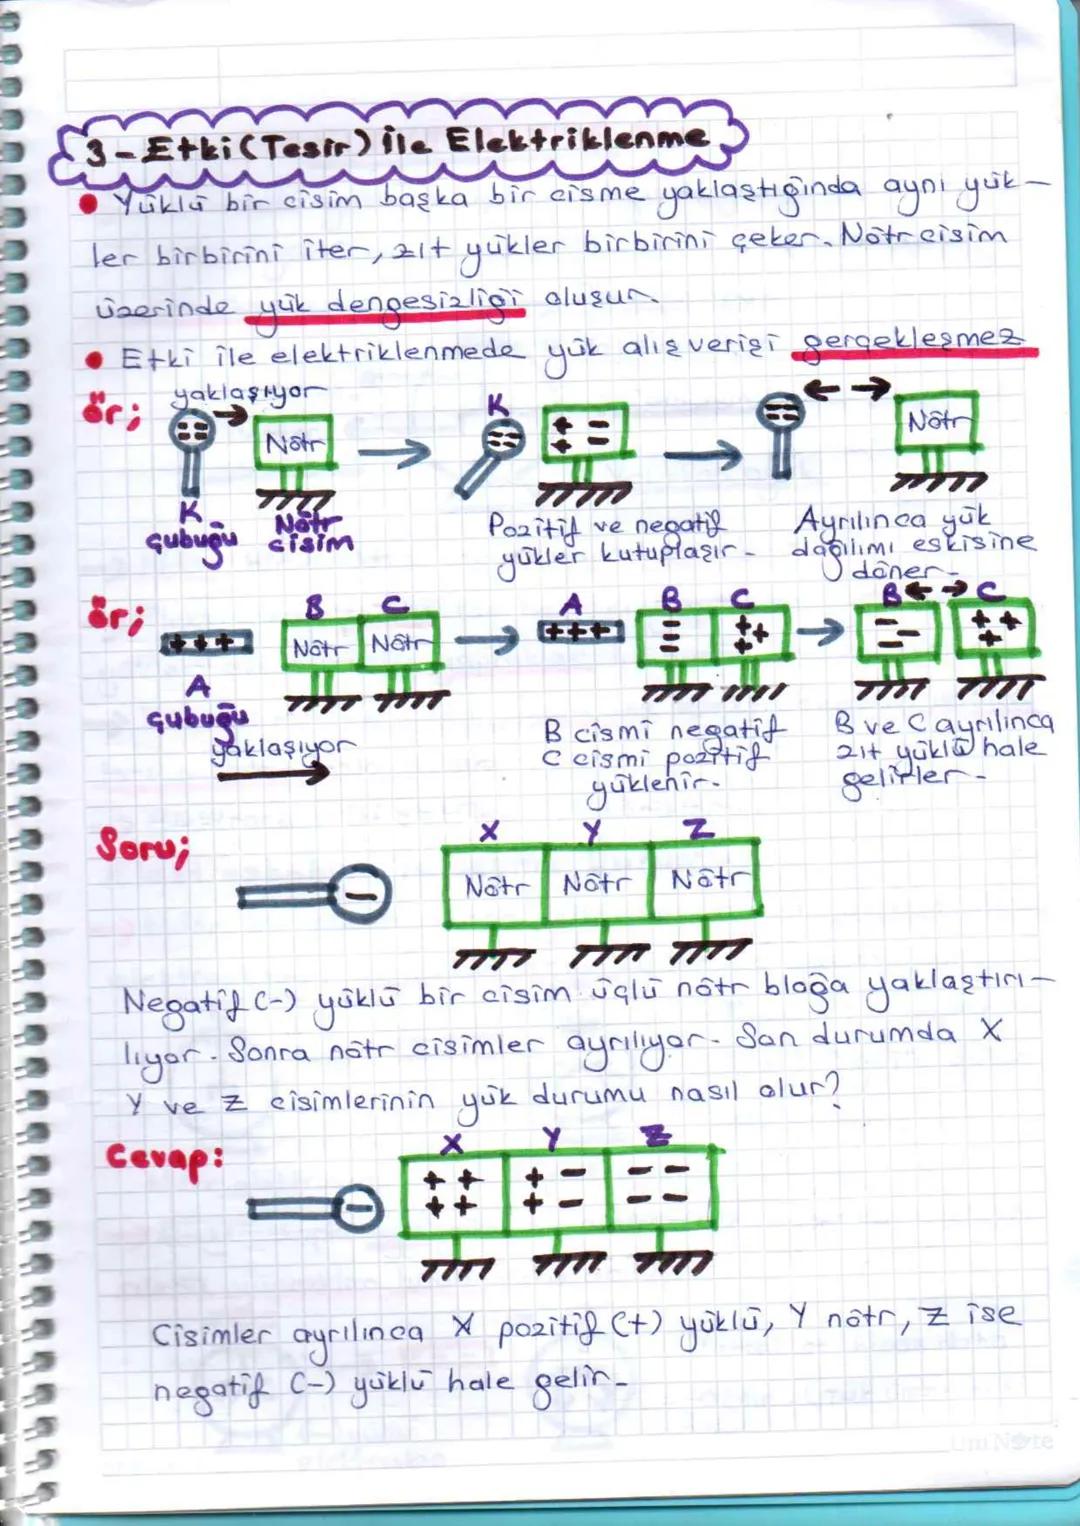 3-Etki(Tesir) ile Elektriklenme
Yüklü bir cisim başka bir cisme yaklaştığında aynı yük-
ler birbirini iter, zıt yükler birbirini çeker. Nötr cisim
üzerinde yük dengesizliği oluşur.
Etki ile elektriklenmede yük alışverişi gerçekleşmez
ör; yaklaşıyor
K
Nötr
Nötr
K çubuğu
Nötr cisim
Pozitif ve negatif
yükler kutuplaşır.
Ayrılınca yük
dağılımı eskisine
döner.
ör;
B C A B C B C
+++ Nötr Nötr +++
A
çubuğu
yaklaşıyor
B cismi negatif
C cismi pozitif
yüklenir.
B ve C ayrılınca
zıt yüklü hale
gelirler.
Soru;
X Y Z
- Nötr Nötr Nötr
Negatif (-) yüklü bir cisim üçlü nötr bloğa yaklaştırı-
lıyor. Sonra nötr cisimler ayrılıyor. Son durumda X
Y ve Z cisimlerinin yük durumu nasıl olur?
Cevap:
X Y Z
- ++ + - --
++ + - --
Cisimler ayrılınca X pozitif (+) yüklü, Y nötr, Z ise
negatif (-) yüklü hale gelir.
Um Note